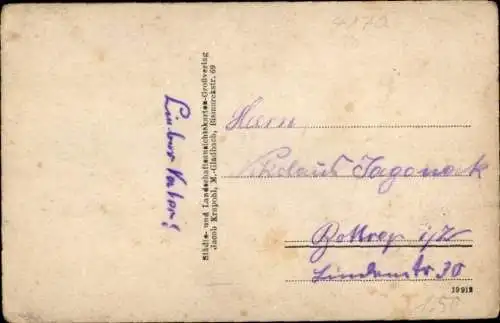 4172
Lieber Vater!
Städte- und Landschaftsansichtskarten-Großverlag
Jacob Krapohl, M.-Gladbach, Bismarckstr. 69
Herrn
Nikolaus
Bottrop i/W
Lindenstr 30
19912
1.50